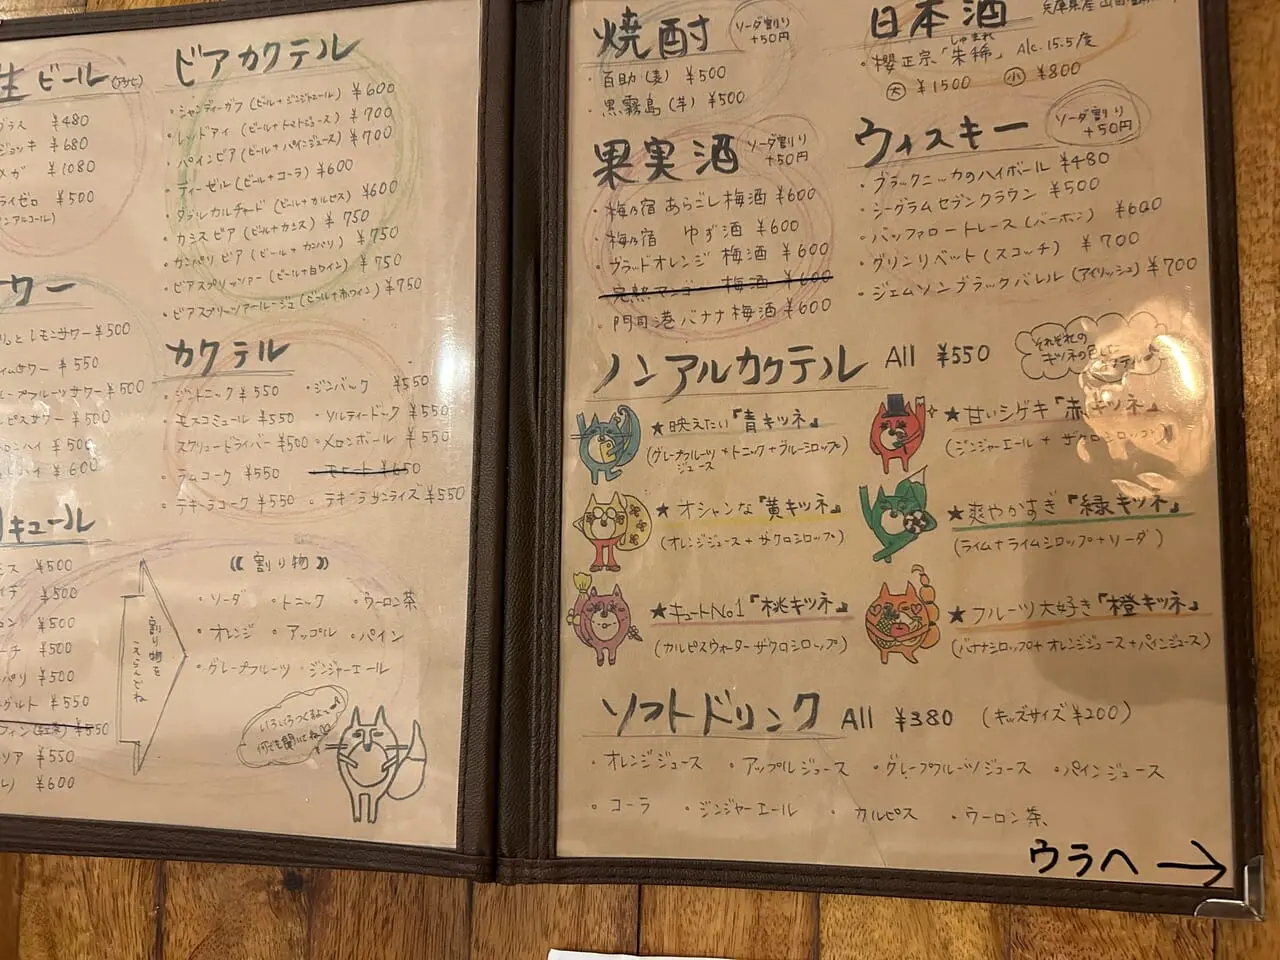 生ビール
グラス ¥480
ジョッキ ¥680
メガ ¥1080
¥500
ビアカクテル
・シャンディーガフ (ビール+ジンジャエール) ¥600
・レッドアイ (ビール+トマトジュース) ¥700
・パインビア (ビール+パインジュース) ¥700
・ディーゼル (ビール+コーラ) ¥600
・ダブルカルチャード (ビール+カルピス) ¥600
・カシスビア (ビール+カシス) ¥750
・カンパリビア (ビール+カンパリ) ¥750
・ビアスプリッツァー (ビール+白ワイン) ¥750
・ビアスプリッツァールージュ (ビール+赤ワイン) ¥750
ワー
レモンサワー ¥500
イムサワー ¥550
ープフルーツサワー ¥500
ルピスサワー ¥500
ーロンハイ ¥500
ハイ ¥600
カクテル
・ジントニック ¥550 ・ジンバック ¥550
・モスコミュール ¥550 ・ソルティードック ¥550
・スクリュードライバー ¥500 ・メロンボール ¥550
・ラムコーク ¥550
・テキーラコーク ¥550 ・テキーラサンライズ ¥550
キュール
¥500
¥500
¥500
¥500
¥500
¥550
¥550
¥550
¥600
割り物を
えらんでね
《割り物》
・ソーダ ・トニック ・ウーロン茶
・オレンジ ・アップル ・パイン
・グレープフルーツ ・ジンジャーエール
いろいろつくるよ〜♪
何でも聞いてね
焼酎
ソーダ割り
+50円
・百助(麦) ¥500
・黒霧島(芋) ¥500
果実酒
ソーダ割り
+50円
・梅乃宿 あらごし梅酒 ¥600
・梅乃宿 ゆず酒 ¥600
・ブラッドオレンジ 梅酒 ¥600
完熟マンゴー 梅酒 ¥600
・門司港バナナ梅酒 ¥600
日本酒
しゅまれ
・櫻正宗「朱稀」 Alc.15.5度
大 ¥1500 小 ¥800
ウィスキー
ソーダ割り
+50円
・ブラックニッカのハイボール ¥480
・シーグラムセブンクラウン ¥500
・バッファロートレース(バーボン) ¥600
・グリンリベット(スコッチ) ¥700
・ジェムソンブラックバレル(アイリッシュ) ¥700
ノンアルカクテル All ¥550
それぞれの
キツネの色した
★映えたい『青キツネ』
(グレープフルーツジュース+トニック+ブルーシロップ)
★甘いシゲキ『赤キツネ』
(ジンジャーエール+ザクロシロップ)
★オシャンな『黄キツネ』
(オレンジジュース+ザクロシロップ)
★爽やかすぎ『緑キツネ』
(ライム+ライムシロップ+ソーダ)
★キュートNo1『桃キツネ』
(カルピスウォーター ザクロシロップ)
★フルーツ大好き『橙キツネ』
(バナナシロップ+オレンジジュース+パインジュース)
ソフトドリンク All ¥380 (キッズサイズ ¥200)
・オレンジジュース ・アップルジュース ・グレープフルーツジュース ・パインジュース
・コーラ ・ジンジャーエール ・カルピス ・ウーロン茶
ウラへ →